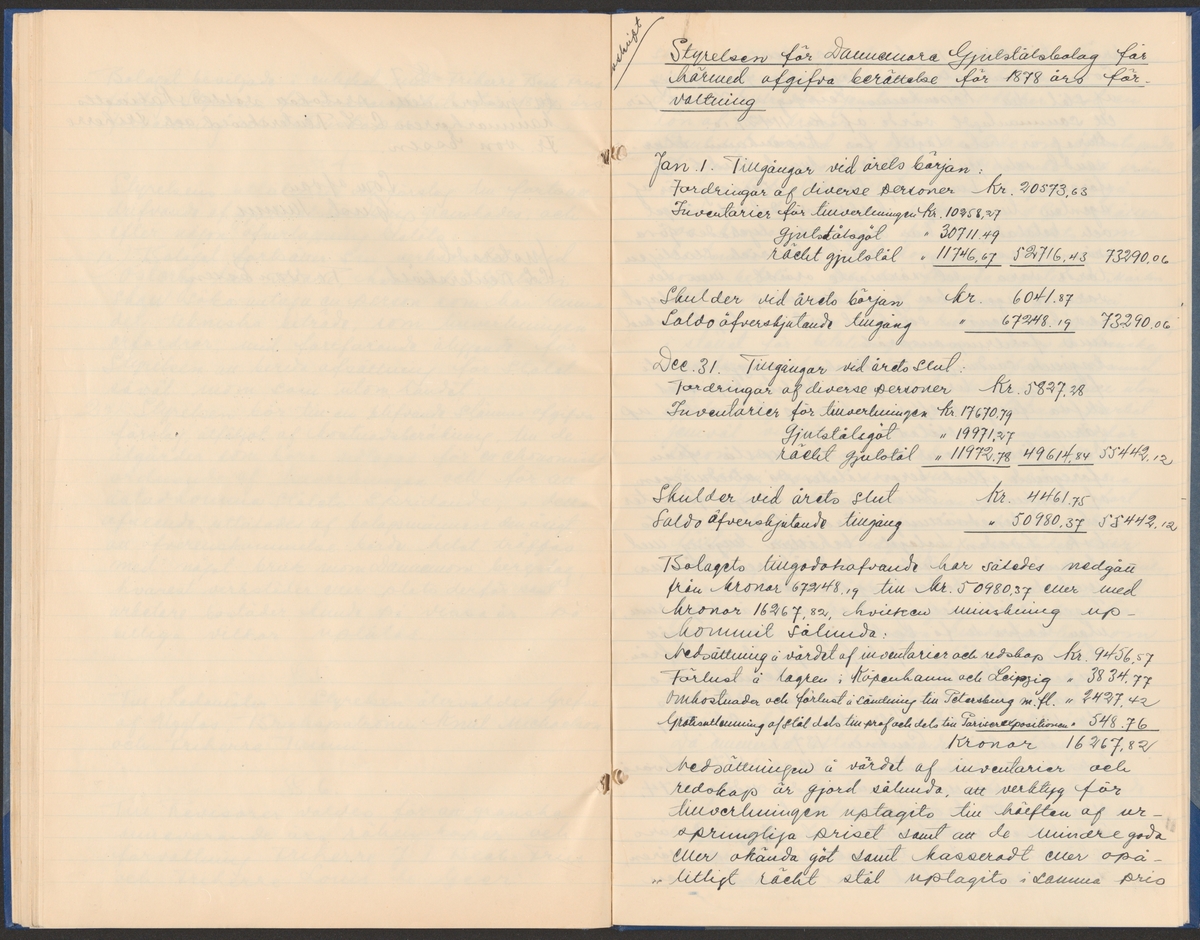 Styrelsen för Dannemora Gjutstålsbolag får
härmed afgifva berättelse för 1878 års för-
valtning
Jan. 1. Tillgångar vid årets början:
Fordringar af diverse personer Kr. 20573,63
Inventarier för tillverkningen Kr. 10258,27
Gjutstålsgöt " 30711.49
räckt gjutstål " 11746,67 52716,43 73290.06
Skulder vid årets början Kr. 6041.87
Saldo öfverskjutande tillgång " 67248.19 73290.06
Dec. 31. Tillgångar vid årets slut:
Fordringar af diverse personer Kr. 5827,28
Inventarier för tillverkningen Kr 17670,79
Gjutstålsgöt " 19971,27
räckt gjutstål " 11972.78 49614,84 55442.12
Skulder vid årets slut Kr. 4461.75
Saldo öfverskjutande tillgång " 50980.37 55442.12
Bolagets tillgodohafvande har således nedgått
från kronor 67248.19 till Kr. 50980,37 eller med
kronor 16267,82, hvilken minskning up-
kommit sålunda:
Nedsättning å värdet af inventarier och redskap Kr. 9456,57
Förlust å lagren i Köpenhamn och Leipzig " 3834.77
Omkostnader och förlust å sändning till Petersburg m.fl. " 2427,42
Gratisutlemning af stål dels till prof och dels till Pariserexpositionen " 548.76
Kronor 16267,82
Nedsättningen å värdet af inventarier och
redskap är gjord sålunda, att verktyg för
tillverkningen uptagits till hälften af ur-
sprungliga priset samt att de mindre goda
eller okända göt samt kasseradt eller opå-
" litligt räckt stål uptagits i samma pris